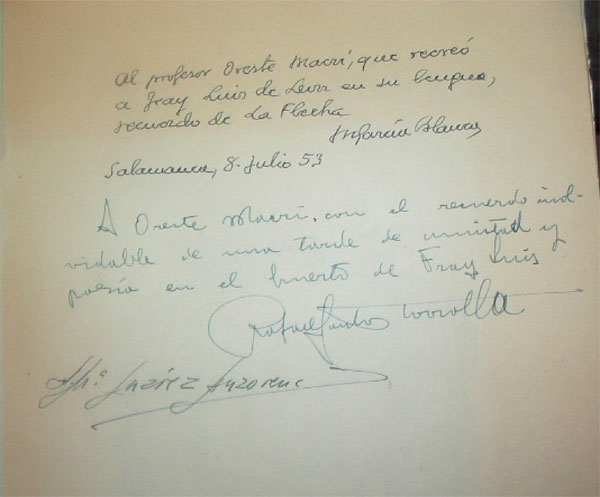 Al profesor Oreste Macrí, que recreó
a Fray Luis de León en su lengua,
recuerdo de La Flecha
MGarcía Blanco
Salamanca, 8. Julio 53
A Oreste Macrí, con el recuerdo inol-
vidable de una tarde de amistad y
poesía en el huerto de Fray Luis
Rafael Santos Torroella
Suárez